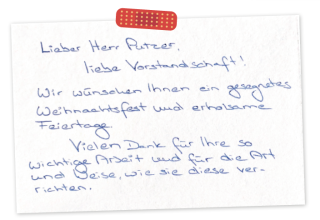 Lieber Herr Putzer,
liebe Vorstandschaft!
Wir wünschen Ihnen ein gesegnetes
Weihnachtsfest und erholsame
Feiertage.
Vielen Dank für Ihre so
wichtige Arbeit und für die Art
und Weise, wie sie diese ver-
richten.